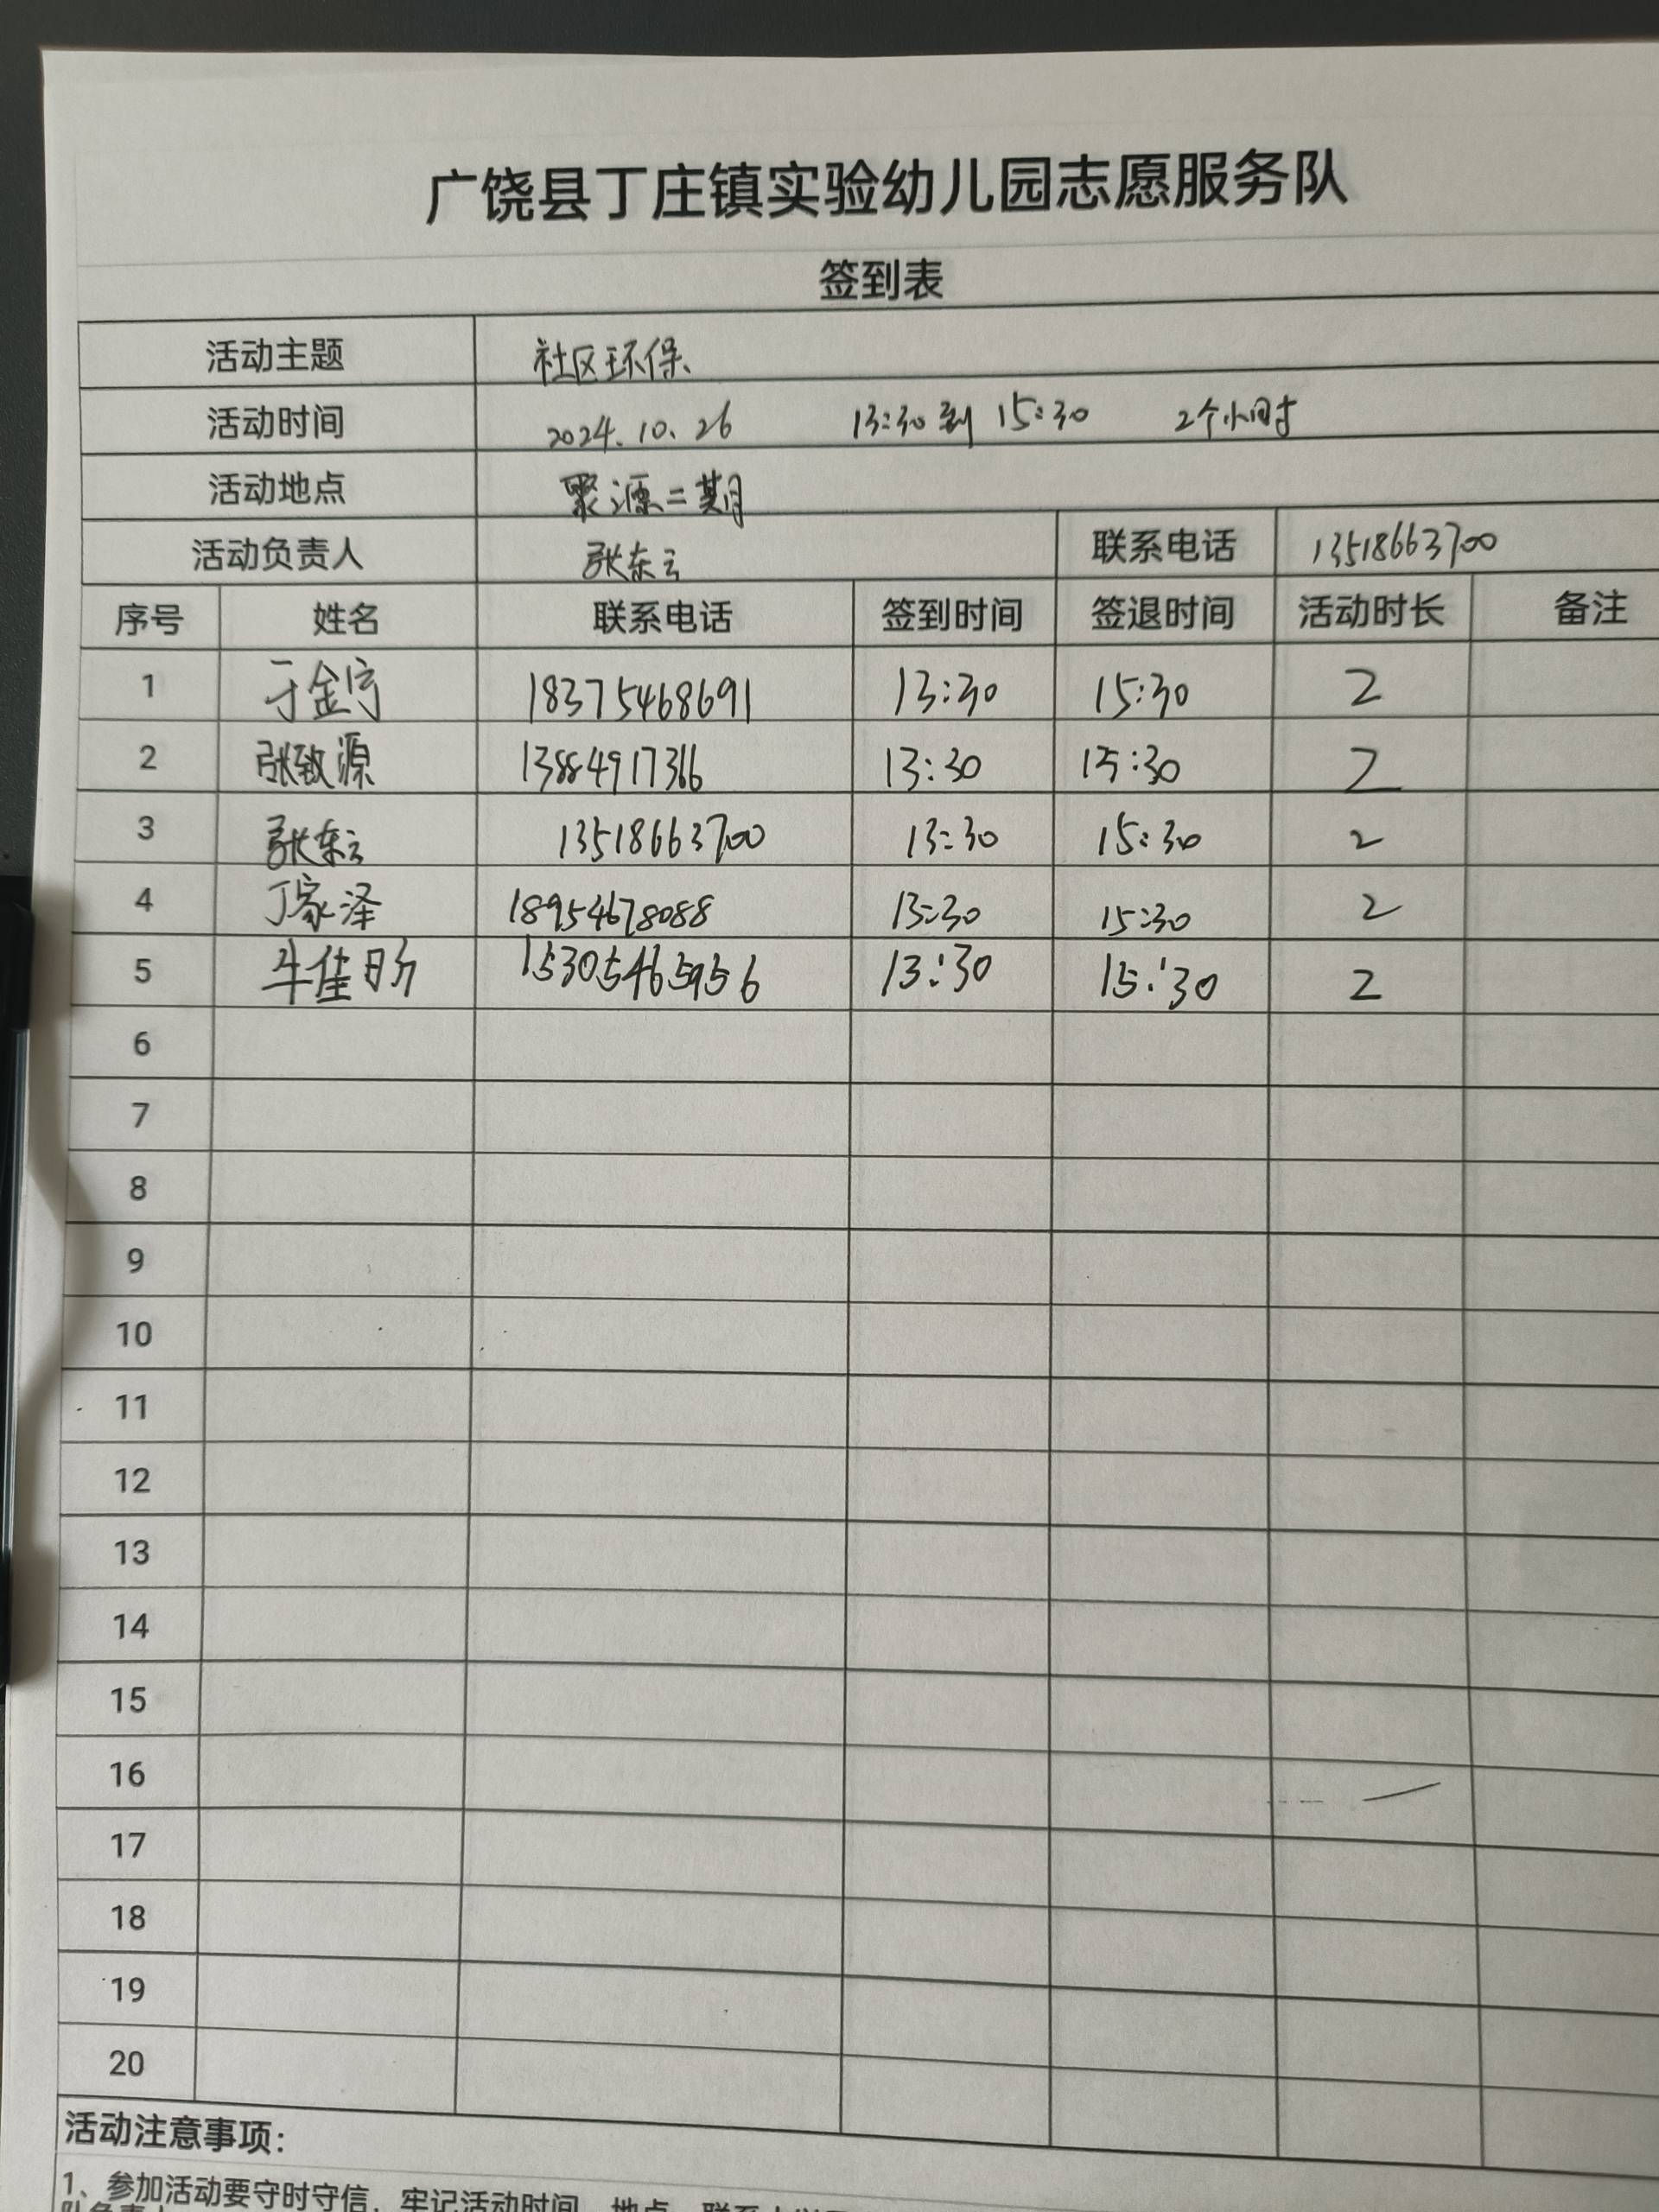 广饶县丁庄镇实验幼儿园志愿服务队
签到表
活动主题 社区环保
活动时间 2024.10.26 13:30到15:30 2个小时
活动地点 聚源二期
活动负责人 张东云 联系电话 13518663700
序号 姓名 联系电话 签到时间 签退时间 活动时长 备注
1 于金宇 18375468691 13:30 15:30 2
2 张致源 13884917366 13:30 15:30 2
3 张东云 13518663700 13:30 15:30 2
4 丁家泽 18954678088 13:30 15:30 2
5 牛佳昕 15305465956 13:30 15:30 2
6
7
8
9
10
11
12
13
14
15
16
17
18
19
20
活动注意事项:
1、参加活动要守时守信，牢记活动时间、地点、联系
队负责人